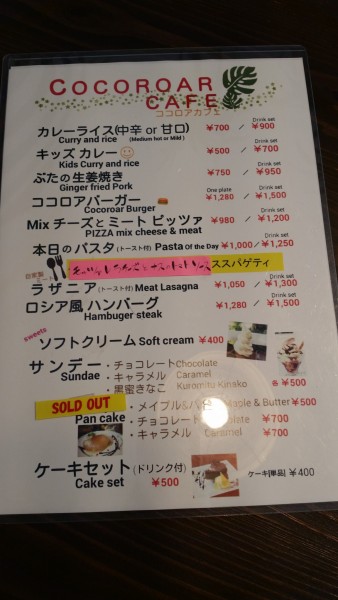 COCOROAR
CAFE
ココロアカフェ
Drink set
カレーライス(中辛 or 甘口) ¥700 / ¥900
Curry and rice (Medium hot or Mild)
Drink set
キッズ カレー ¥500 / ¥700
Kids Curry and rice
Drink set
ぶたの生姜焼き ¥750 / ¥950
Ginger fried Pork
One plate Drink set
ココロアバーガー ¥1,280 / ¥1,500
Cocoroar Burger
Drink set
Mix チーズと ミート ピッツァ ¥980 / ¥1,200
PIZZA mix cheese & meat
Drink set
本日のパスタ (トースト付) Pasta Of the Day ¥1,000 / ¥1,250
スパゲティ
自家製
Drink set
ラザニア (トースト付) Meat Lasagna ¥1,050 / ¥1,300
Drink set
ロシア風 ハンバーグ ¥1,280 / ¥1,500
Hambuger steak
sweets
ソフトクリーム Soft cream ¥400
サンデー ・チョコレート Chocolate
Sundae ・キャラメル Caramel 各 ¥500
・黒蜜きなこ Kuromitu Kinako
SOLD OUT ・メイプル&バ Maple & Butter ¥500
Pan cake ・チョコレート ¥700
・キャラメル Caramel ¥700
ケーキセット (ドリンク付)
Cake set ¥500
ケーキ[単品] ¥400